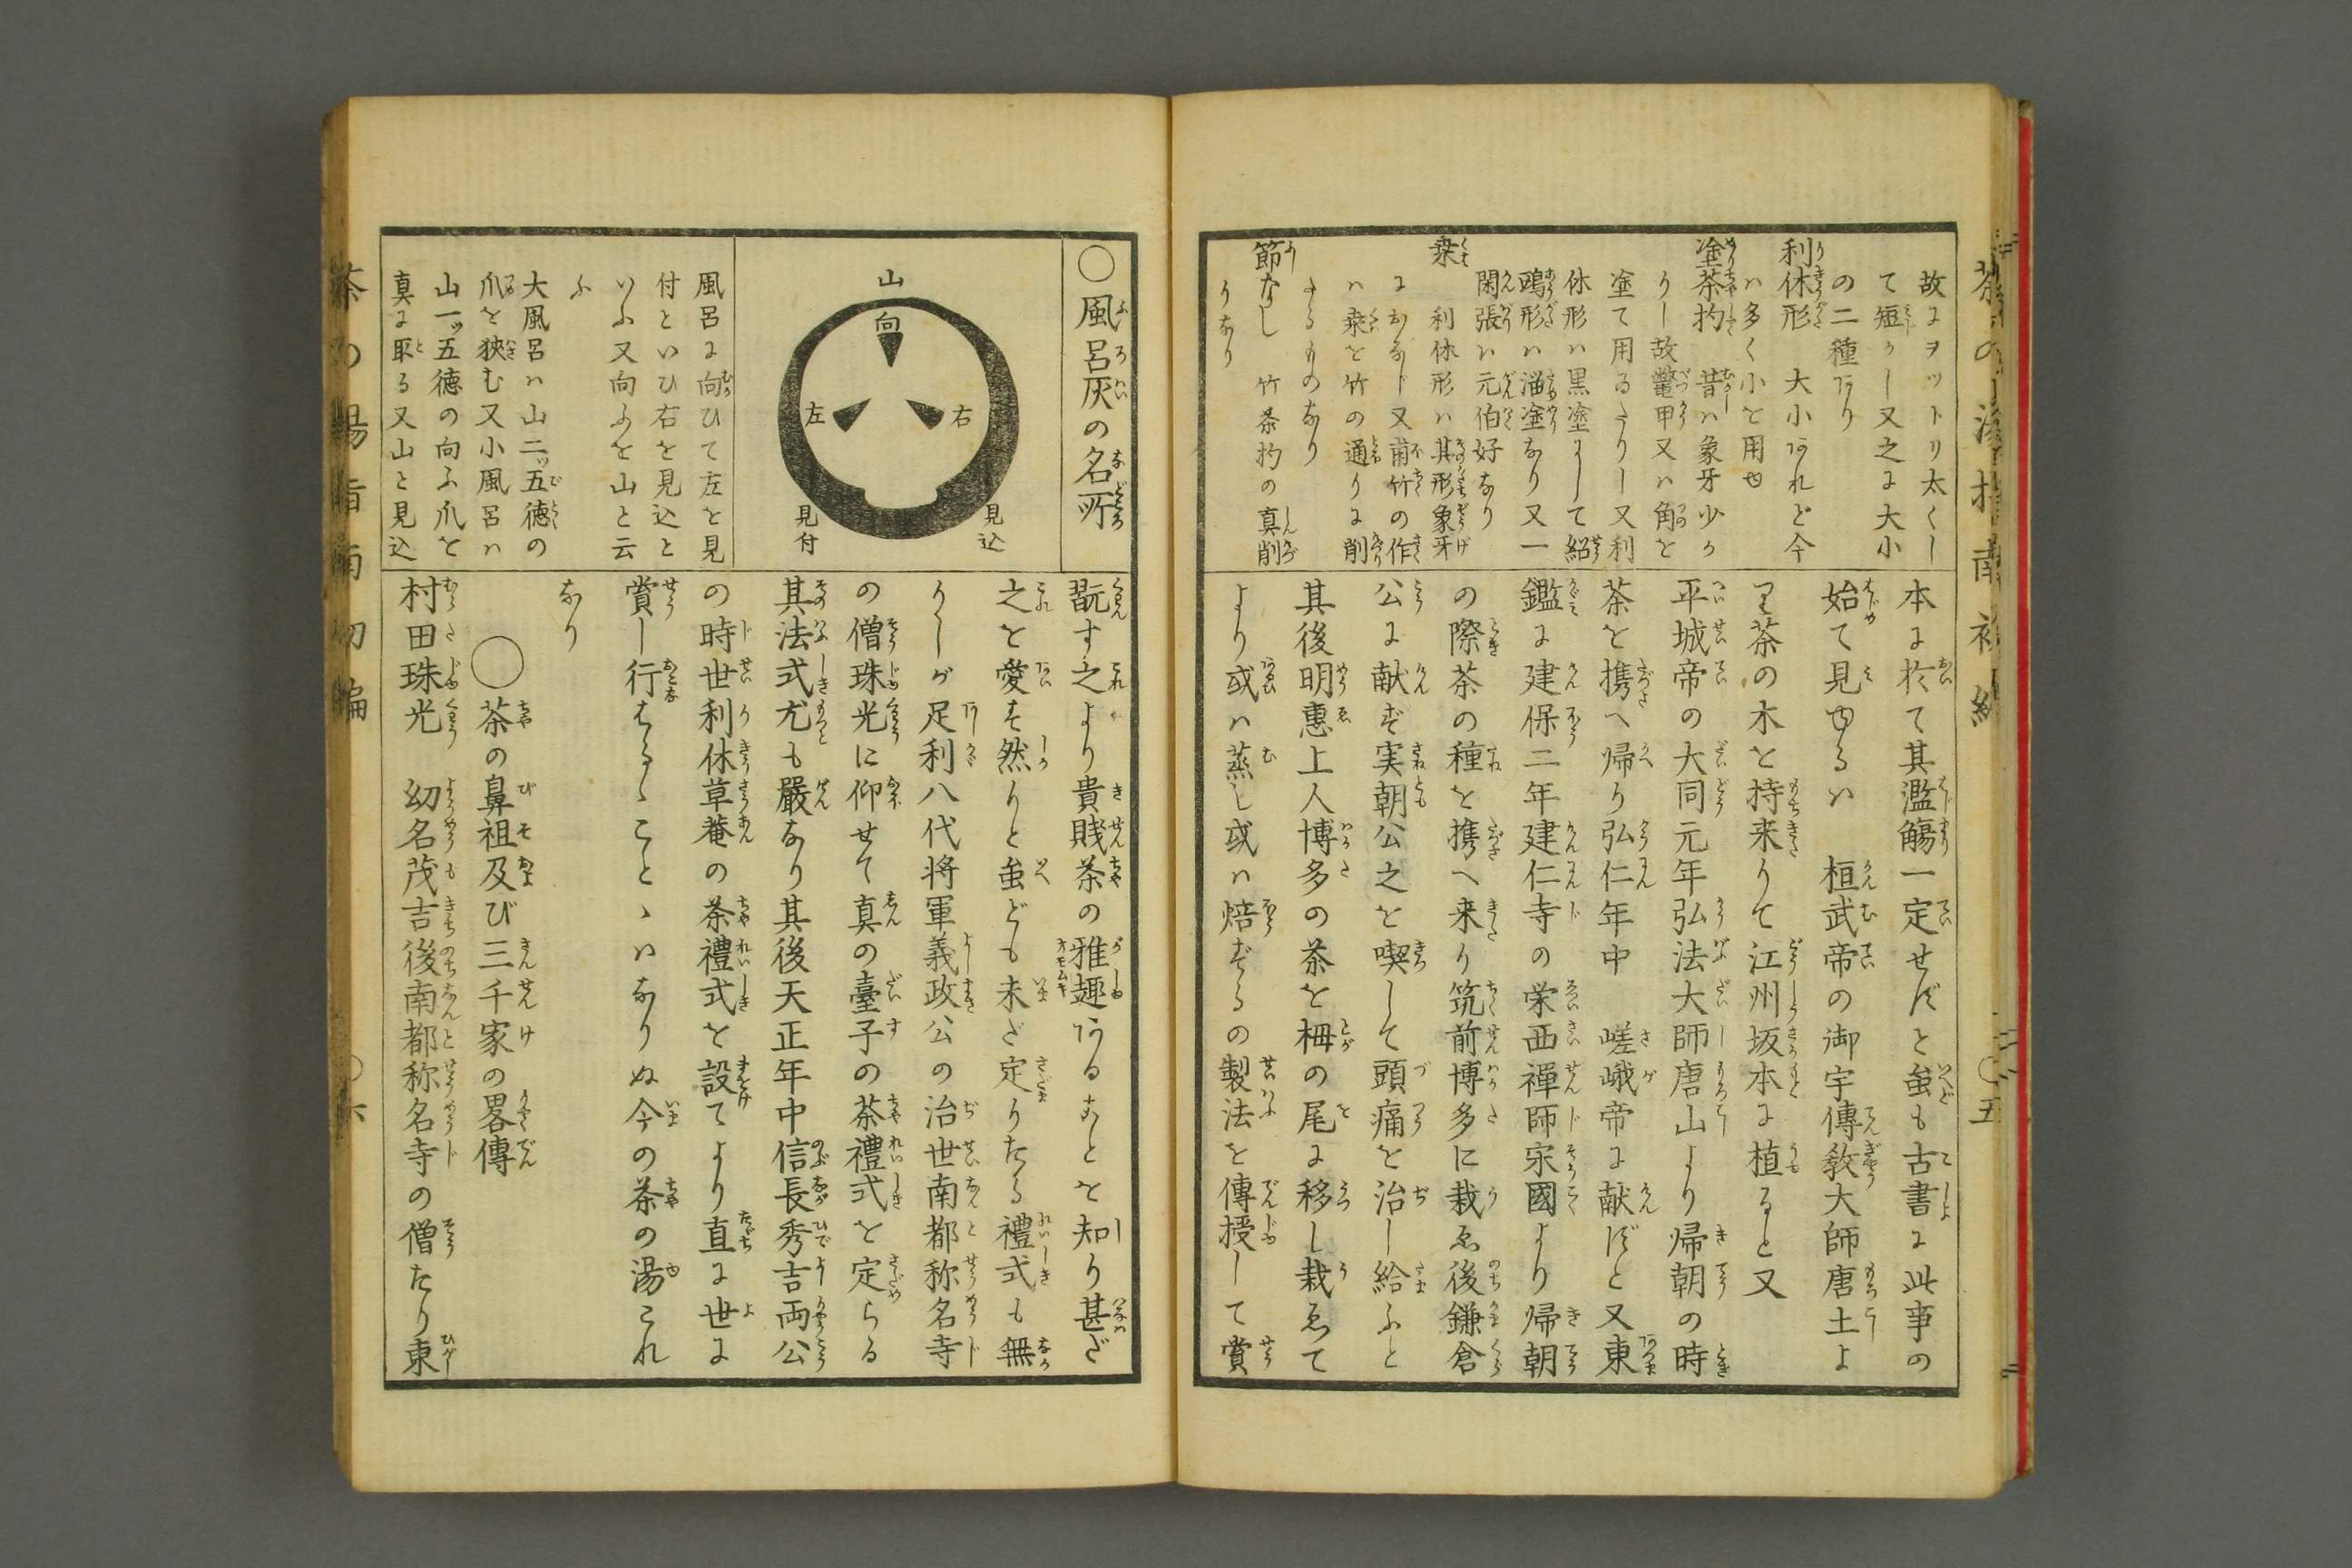 茶の湯指南初編
〇五
故にヲットリ太くし
て短かし又之に大小
の二種あり
利休形　大小あれど今
ハ多く小を用ゆ
塗茶杓　昔ハ象牙少か
りし故鼈甲又ハ角を
塗て用ゐたりし又利
休形ハ黒塗にして紹
鷗形ハ溜塗なり又一
閑張ハ元伯好なり
利休形ハ其形象牙
におなじ又甫竹の作
ハ桑を竹の通りに削
たるものなり
節なし　竹茶杓の真削
りなり
本に於て其濫觴一定せずと虽も古書に此事の
始て見ゆるハ　桓武帝の御宇傳教大師唐土よ
り茶の木を持来りて江州坂本に植ると又
平城帝の大同元年弘法大師唐山より帰朝の時
茶を携へ帰り弘仁年中　嵯峨帝に献ずと又東
鑑に建保二年建仁寺の栄西禅師宋國より帰朝
の際茶の種を携へ来り筑前博多に栽ゑ後鎌倉
公に献ず実朝公之を喫して頭痛を治し給ふと
其後明惠上人博多の茶を栂の尾に移し栽ゑて
より或ハ蒸し或ハ焙ずるの製法を傳授して賞
〇風呂灰の名所
山
向
左
右
見付
見込
風呂に向ひて左を見
付といひ右を見込と
いふ又向ふを山と云
ふ
大風呂ハ山二ッ五徳の
爪を狹む又小風呂ハ
山一ッ五徳の向ふ爪を
真に取る又山と見込
翫す之より貴賎茶の雅趣あることを知り甚ざ
之を愛す然りと虽ども未だ定りたる禮式も無
かりしが足利八代将軍義政公の治世南都称名寺
の僧珠光に仰せて真の臺子の茶禮式を定らる
其法式尤も嚴なり其後天正年中信長秀吉両公
の時世利休草菴の茶禮式を設てより直に世に
賞し行はるゝことゝハなりぬ今の茶の湯これ
なり
〇茶の鼻祖及び三千家の畧傳
村田珠光　幼名茂吉後南都称名寺の僧たり東
茶の湯指南初編
〇六